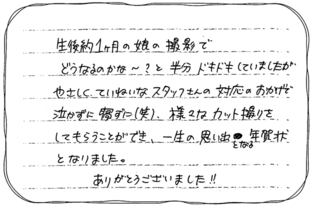 生後約1ヶ月の娘の撮影で
どうなるのかな〜?と半分ドキドキしていましたが
やさしくていねいなスタッフさんの対応のおかげで
泣かずに寝ずに(笑)、様々なカット撮りを
してもらうことができ、一生の思い出となる年賀状
となりました。
ありがとうございました!!